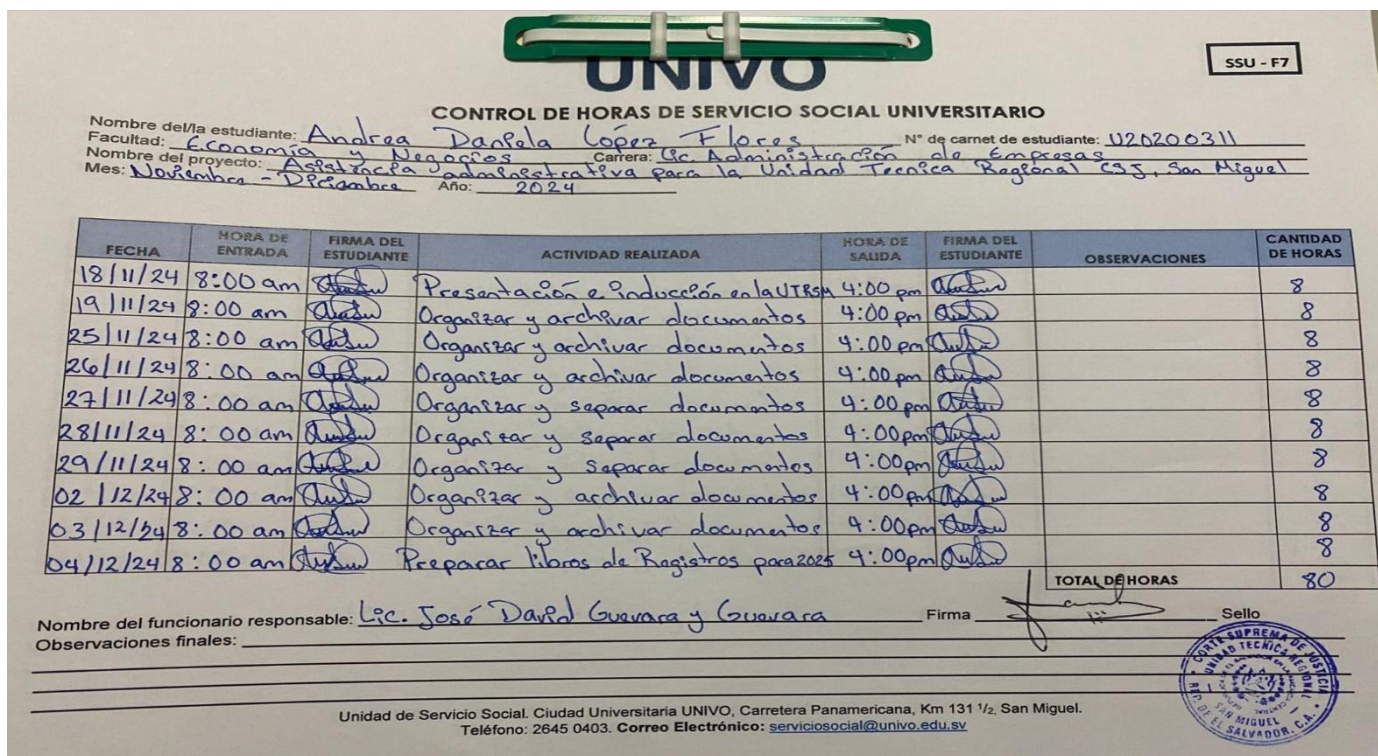 UNIVO
SSU - F7
CONTROL DE HORAS DE SERVICIO SOCIAL UNIVERSITARIO
Nombre del/la estudiante: Andrea Daniela López Flores N° de carnet de estudiante: U20200311
Facultad: Economía y Negocios Carrera: Lic. Administración de Empresas
Nombre del proyecto: Asistencia administrativa para la Unidad Tecnica Regional CSJ, San Miguel
Mes: Noviembre - Diciembre Año: 2024
FECHA HORA DE ENTRADA FIRMA DEL ESTUDIANTE ACTIVIDAD REALIZADA HORA DE SALIDA FIRMA DEL ESTUDIANTE OBSERVACIONES CANTIDAD DE HORAS
18/11/24 8:00 am Presentación e inducción en la UTRSM 4:00 pm 8
19/11/24 8:00 am Organizar y archivar documentos 4:00 pm 8
25/11/24 8:00 am Organizar y archivar documentos 4:00 pm 8
26/11/24 8:00 am Organizar y archivar documentos 4:00 pm 8
27/11/24 8:00 am Organizar y separar documentos 4:00 pm 8
28/11/24 8:00 am Organizar y separar documentos 4:00pm 8
29/11/24 8:00 am Organizar y separar documentos 4:00pm 8
02/12/24 8:00 am Organizar y archivar documentos 4:00pm 8
03/12/24 8:00 am Organizar y archivar documentos 4:00pm 8
04/12/24 8:00 am Preparar libros de Registros para 2025 4:00pm 8
TOTAL DE HORAS 80
Nombre del funcionario responsable: Lic. José David Guevara y Guevara Firma Sello
Observaciones finales:
CORTE SUPREMA DE JUSTICIA
UNIDAD TECNICA REGIONAL
SAN MIGUEL
REP. DE EL SALVADOR, C.A.
Unidad de Servicio Social. Ciudad Universitaria UNIVO, Carretera Panamericana, Km 131 1/2 San Miguel.
Teléfono: 2645 0403. Correo Electrónico: serviciosocial@univo.edu.sv